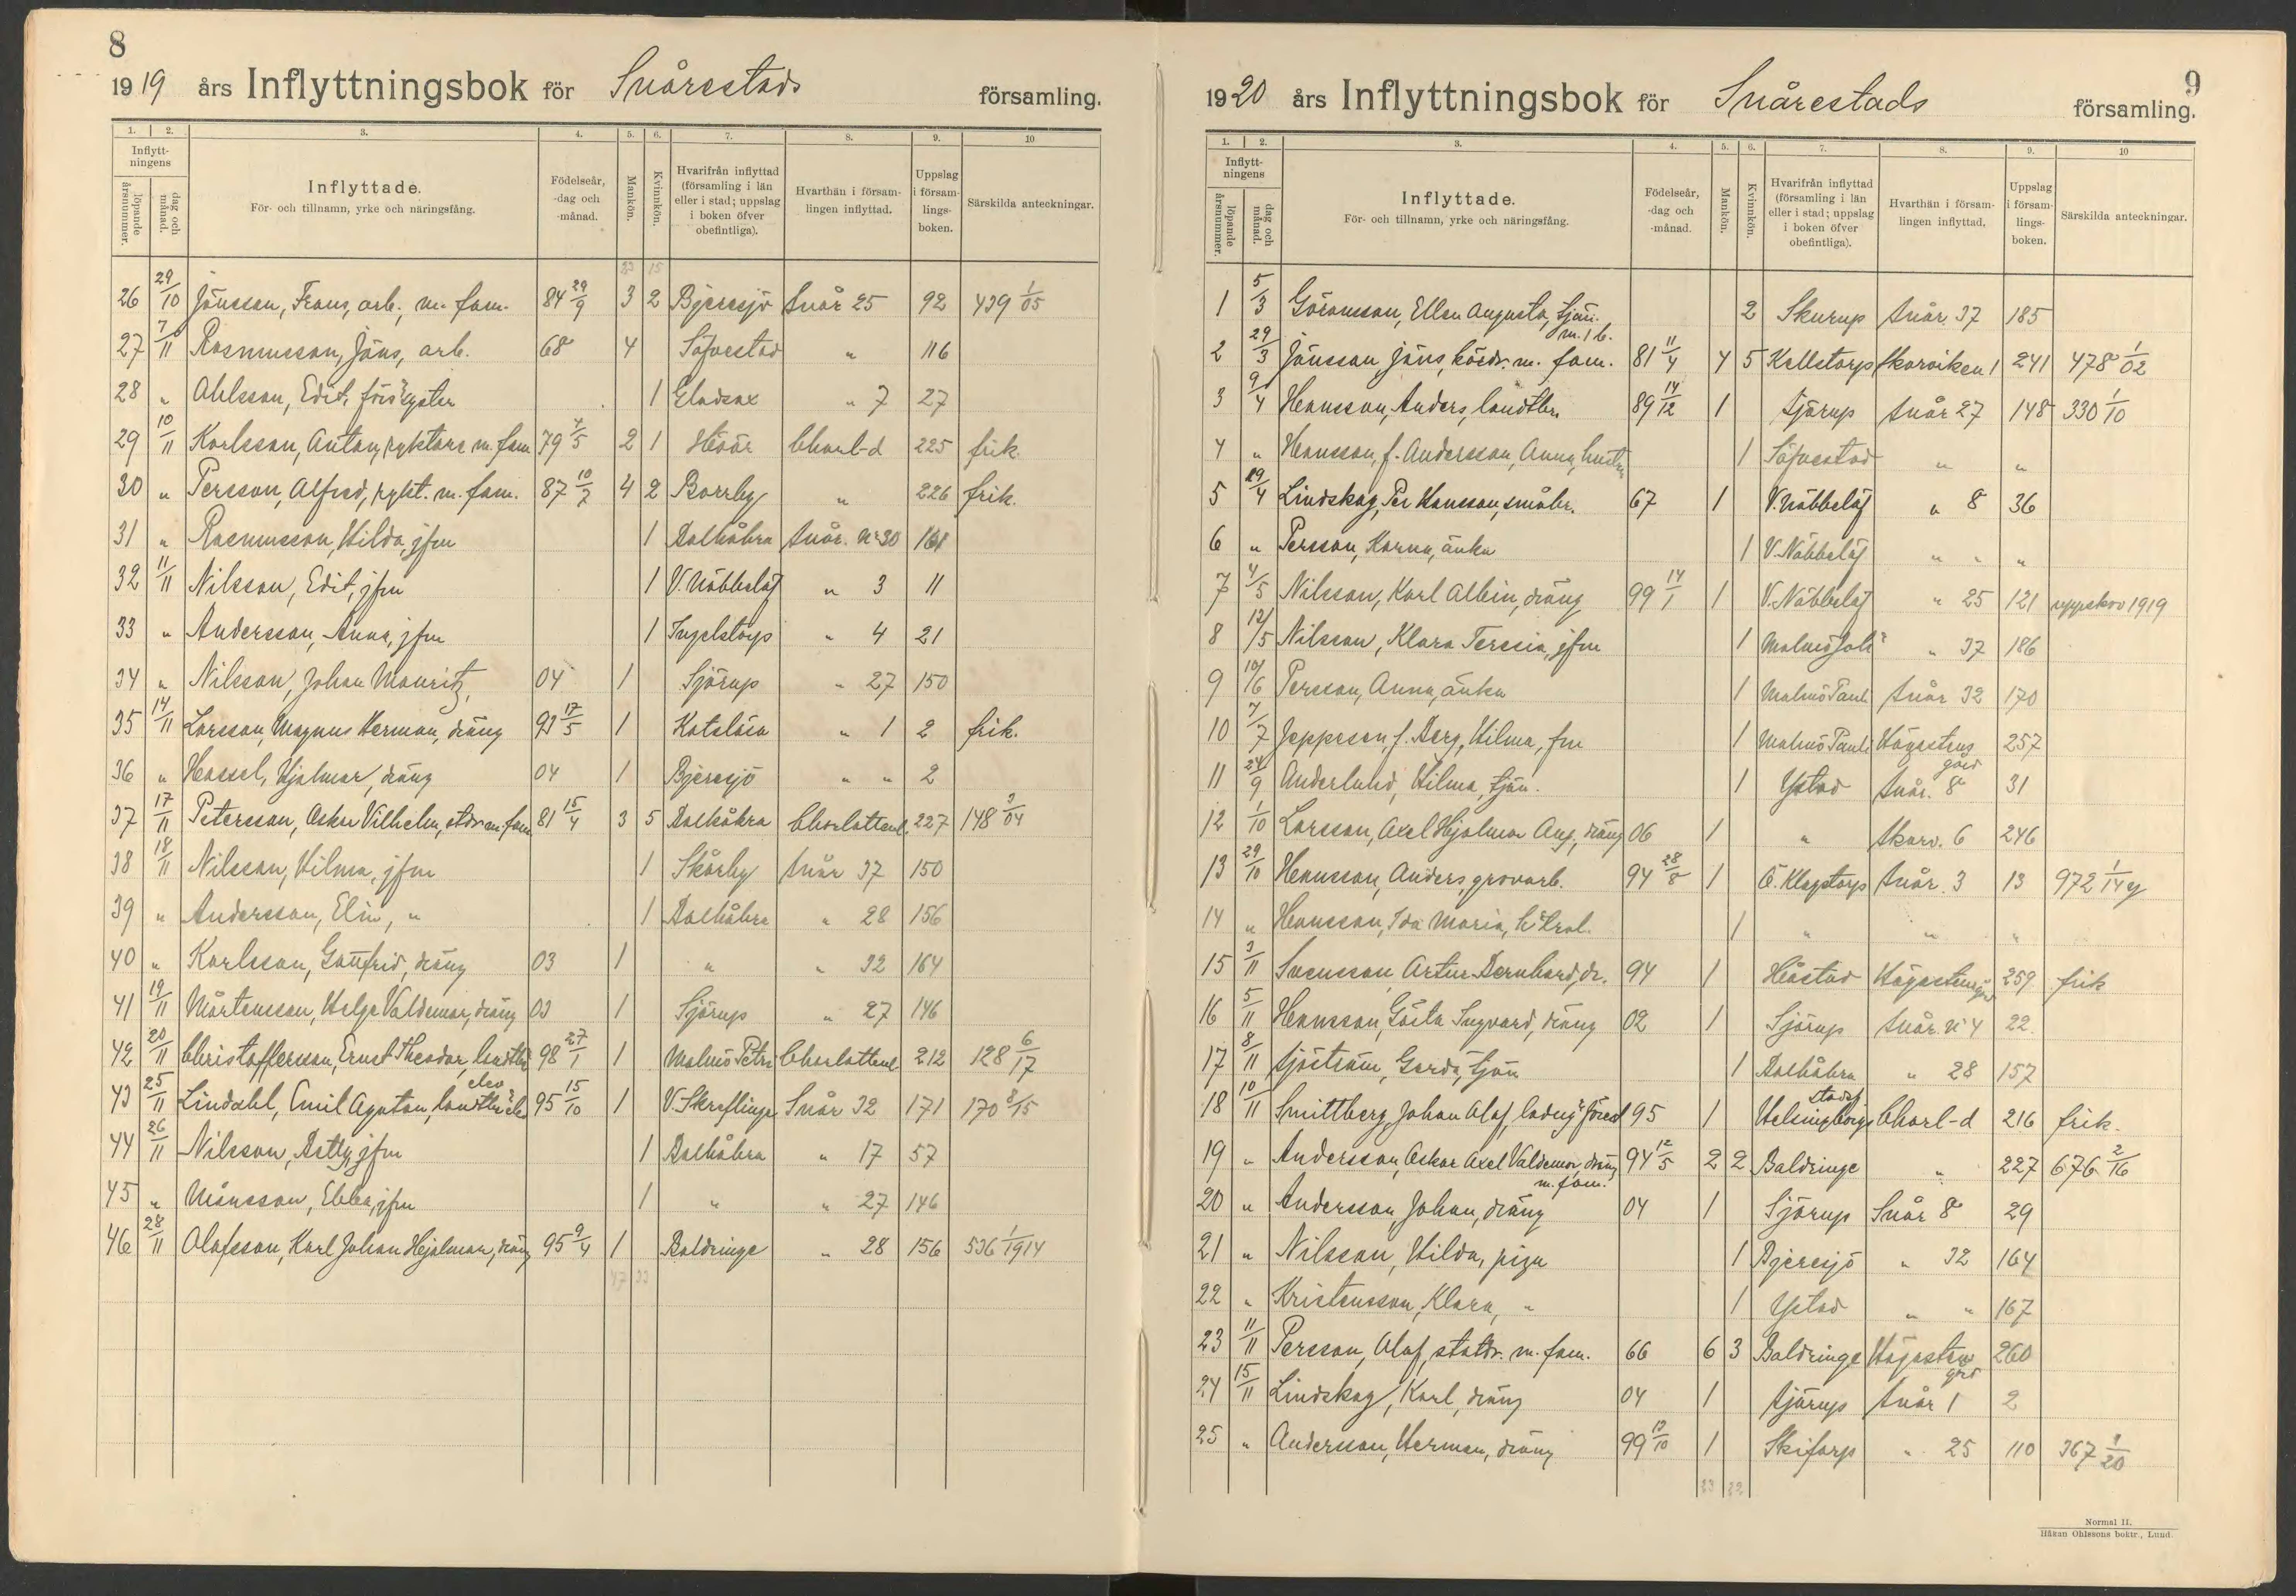 8
1919 års Inflyttningsbok för Snårestads församling.
1. 2. 3. 4. 5. 6. 7. 8. 9. 10
Inflyttningens löpande årsnummer. dag och månad. Inflyttade. För- och tillnamn, yrke och näringsfång. Födelseår, -dag och -månad. Mankön. Kvinnkön. Hvarifrån inflyttad (församling i län eller i stad; uppslag i boken öfver obefintliga). Hvarthän i församlingen inflyttad. Uppslag i församlingsboken. Särskilda anteckningar.
26 29/10 Jönsson, Frans, arb., m. fam. 84 29/9 3 2 Bjeresjö Snår 25 92 439 1/05
27 7/11 Rasmusson, Jöns, arb. 68 4 Söfvestad " 116
28 " Ahlsson, Edit, 1 Gladsax " 7 27
29 10/11 Karlsson, Anton, ryktare m. fam 79 4/5 2 1 Höör Charl-d 225 frik.
30 " Persson, Alfred, rykt. m. fam. 87 10/7 4 2 Borrby " 226 frik.
31 " Rasmusson, Hilda, jfru 1 Balkåkra Snår. Nr 30 161
32 11/11 Nilsson, Edit, jfru 1 V. Nöbbelöf " 3 11
33 " Andersson, Anna, jfru 1 Ingelstorp " 4 21
34 " Nilsson, Johan Mauritz, 04 1 Sjörup " 27 150
35 14/11 Larsson, Magnus Herman, dräng 93 17/5 1 Katslösa " 1 2 frik.
36 " Hassel, Hjalmar, dräng 04 1 Bjeresjö " " 2
37 17/11 Petersson, Oskar Vilhelm, statdr m fam 81 15/4 3 5 Balkåkra Charlottenl. 227 148 3/04
38 18/11 Nilsson, Hilma, jfru 1 Skårby Snår 37 150
39 " Andersson, Elin, " 1 Balkåkra " 28 156
40 " Karlsson, Gottfrid, dräng 03 1 " " 32 164
41 19/11 Mårtensson, Helge Valdemar, dräng 03 1 Sjörup " 27 146
42 20/11 Christoffersson, Ernst Theodor, 98 27/1 1 Malmö Petri Charlottenl 212 128 6/17
43 25/11 Lindahl, Emil Agaton, elev 95 15/10 1 V. Skreflinge Snår 32 171 170 8/15
44 26/11 Nilsson, Betty, jfru 1 Balkåkra " 17 57
45 " Månsson, Ebba, jfru 1 " " 27 146
46 28/11 Olofsson, Karl Johan Hjalmar, dräng 95 9/4 1 Baldringe " 28 156 536 1/1914
9
1920 års Inflyttningsbok för Snårestads församling.
1. 2. 3. 4. 5. 6. 7. 8. 9. 10
Inflyttningens löpande årsnummer. dag och månad. Inflyttade. För- och tillnamn, yrke och näringsfång. Födelseår, -dag och -månad. Mankön. Kvinnkön. Hvarifrån inflyttad (församling i län eller i stad; uppslag i boken öfver obefintliga). Hvarthän i församlingen inflyttad. Uppslag i församlingsboken. Särskilda anteckningar.
1 5/3 Göransson, Ellen Augusta, tjän. m. 1 b. 2 Skurup Snår. 37 185
2 29/3 Jönsson, Jöns, m. fam. 81 11/4 4 5 Källstorp Skarviken 1 241 478 1/02
3 9/4 Hansson, Anders, landtbr. 89 14/12 1 Sjörup Snår 27 148 330 1/10
4 " Hansson, f. Andersson, Anna, hustru 1 Söfvestad " "
5 19/4 Lindskog, Per Hansson, småbr. 67 1 V. Nöbbelöf " 8 36
6 " Persson, Karna, änka 1 V. Nöbbelöf " " "
7 4/5 Nilsson, Karl Albin, dräng 99 14/1 1 V. Nöbbelöf " 25 121 uppskov 1919
8 12/5 Nilsson, Klara Teresia, jfru 1 Malmö Joh. " 37 186
9 10/6 Persson, Anna, änka 1 Malmö Pauli Snår 32 170
10 7/7 Jeppsson, f. Berg, Hilma, fru 1 Malmö Pauli Högestens gård 257
11 24/9 Anderlund, Hilma, tjän. 1 Ystad Snår. 8 31
12 1/10 Larsson, Axel Hjalmar Aug., dräng 06 1 " Skarv. 6 246
13 29/10 Hansson, Anders, grovarb. 94 28/8 1 Ö. Klagstorp Snår. 3 13 972 1/14
14 " Hansson, Ida Maria, 1 " " "
15 3/11 Svensson, Artur Bernhard, dr. 94 1 Hästad Högestens gård 259 frik
16 5/11 Hansson, Gösta Ingvard, dräng 02 1 Sjörup Snår. N 4 22
17 8/11 Sjöström, Gerda, tjän 1 Balkåkra " 28 157
18 10/11 Smittberg, Johan Olof, 95 1 Helsingborgs stadsf Charl-d 216 frik.
19 " Andersson, Oskar Axel Valdemar, dräng m. fam. 94 12/5 2 2 Baldringe " 227 676 2/16
20 " Andersson, Johan, dräng 04 1 Sjörup Snår 8 29
21 " Nilsson, Hilda, piga 1 Bjeresjö " 32 164
22 " Kristensson, Klara, " 1 Ystad " " 167
23 11/11 Persson, Olof, statdr. m. fam. 66 6 3 Baldringe Högestens gård 260
24 15/11 Lindskog, Karl, dräng 04 1 Sjörup Snår 1 2
25 " Andersson, Herman, dräng 99 13/10 1 Skifarp " 25 110 367 9/20
Normal II.
Håkan Ohlssons boktr., Lund.